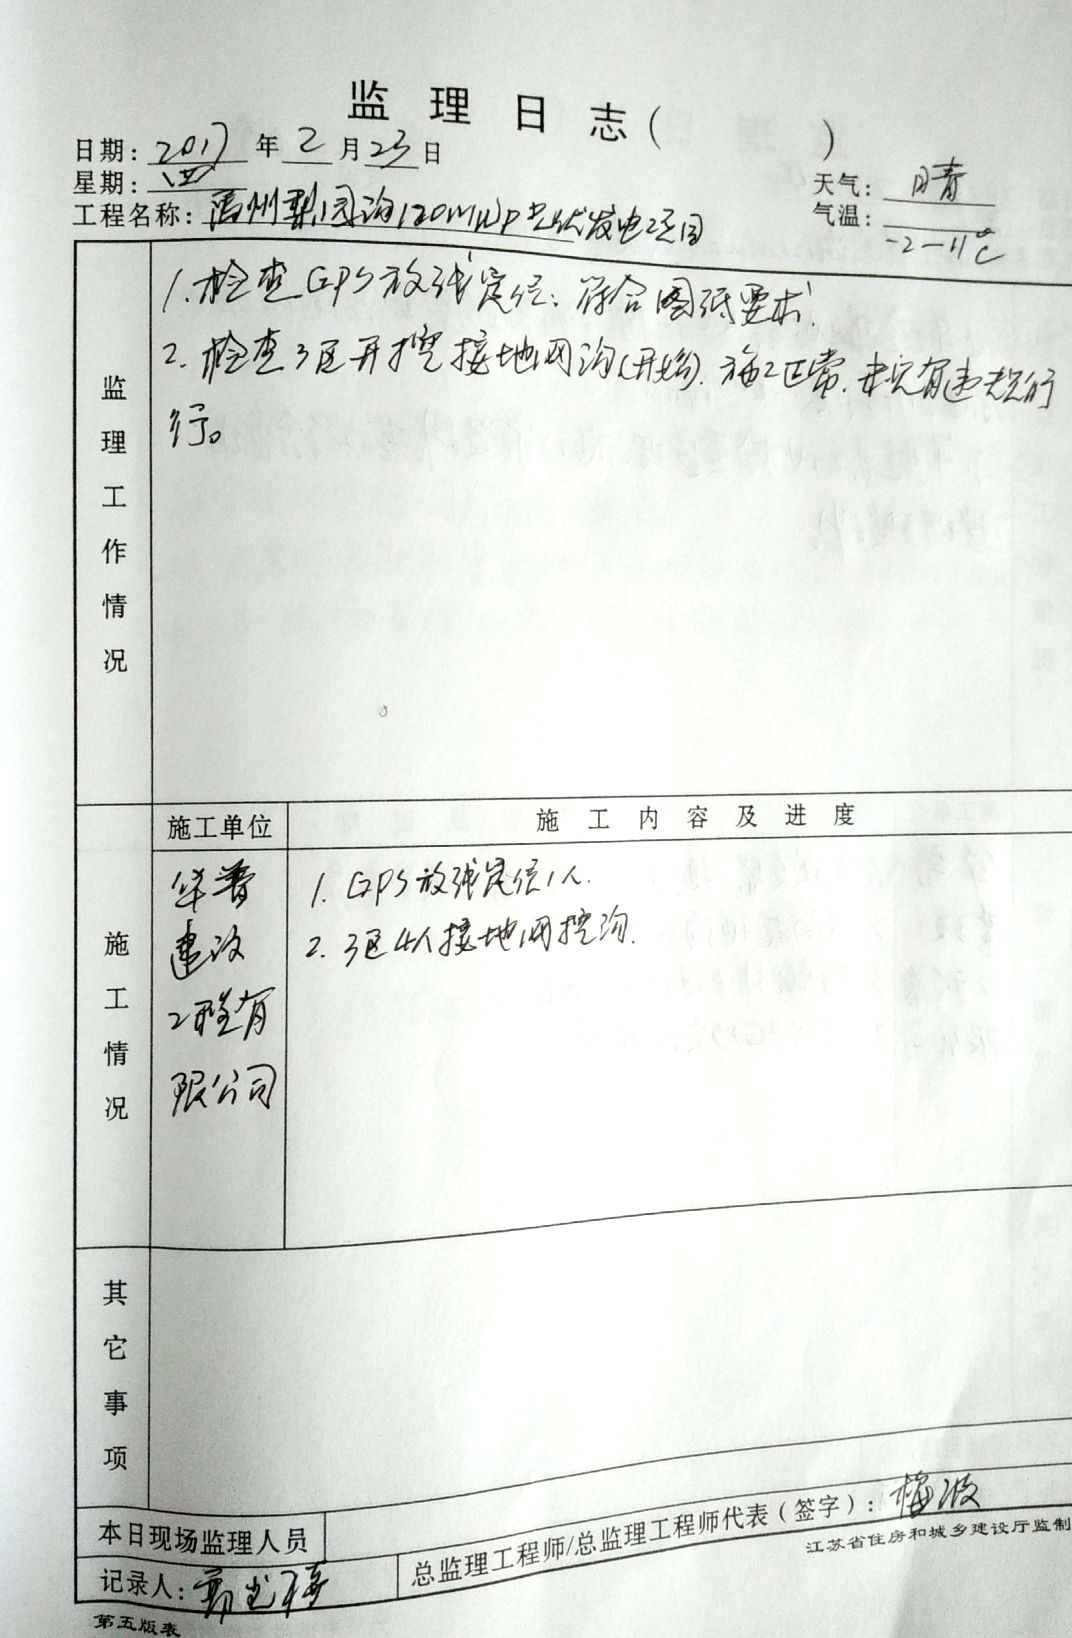 监理日志（　　　）
日期：2017年2月23日
星期：四
天气：晴
工程名称：禹州梨园沟120MWp光伏发电项目
气温：-2-11℃
监理工作情况
1.检查GPS放线定位，符合图纸要求.
2.检查3区开挖接地网沟(开始).施工正常.未见有违规行
行。
施工情况
施工单位
施工内容及进度
华普
建设
工程有
限公司
1. GPS放线定位1人.
2. 3区4人接地网挖沟.
其它事项
本日现场监理人员
总监理工程师/总监理工程师代表（签字）：梅波
记录人：
江苏省住房和城乡建设厅监制
第五版表